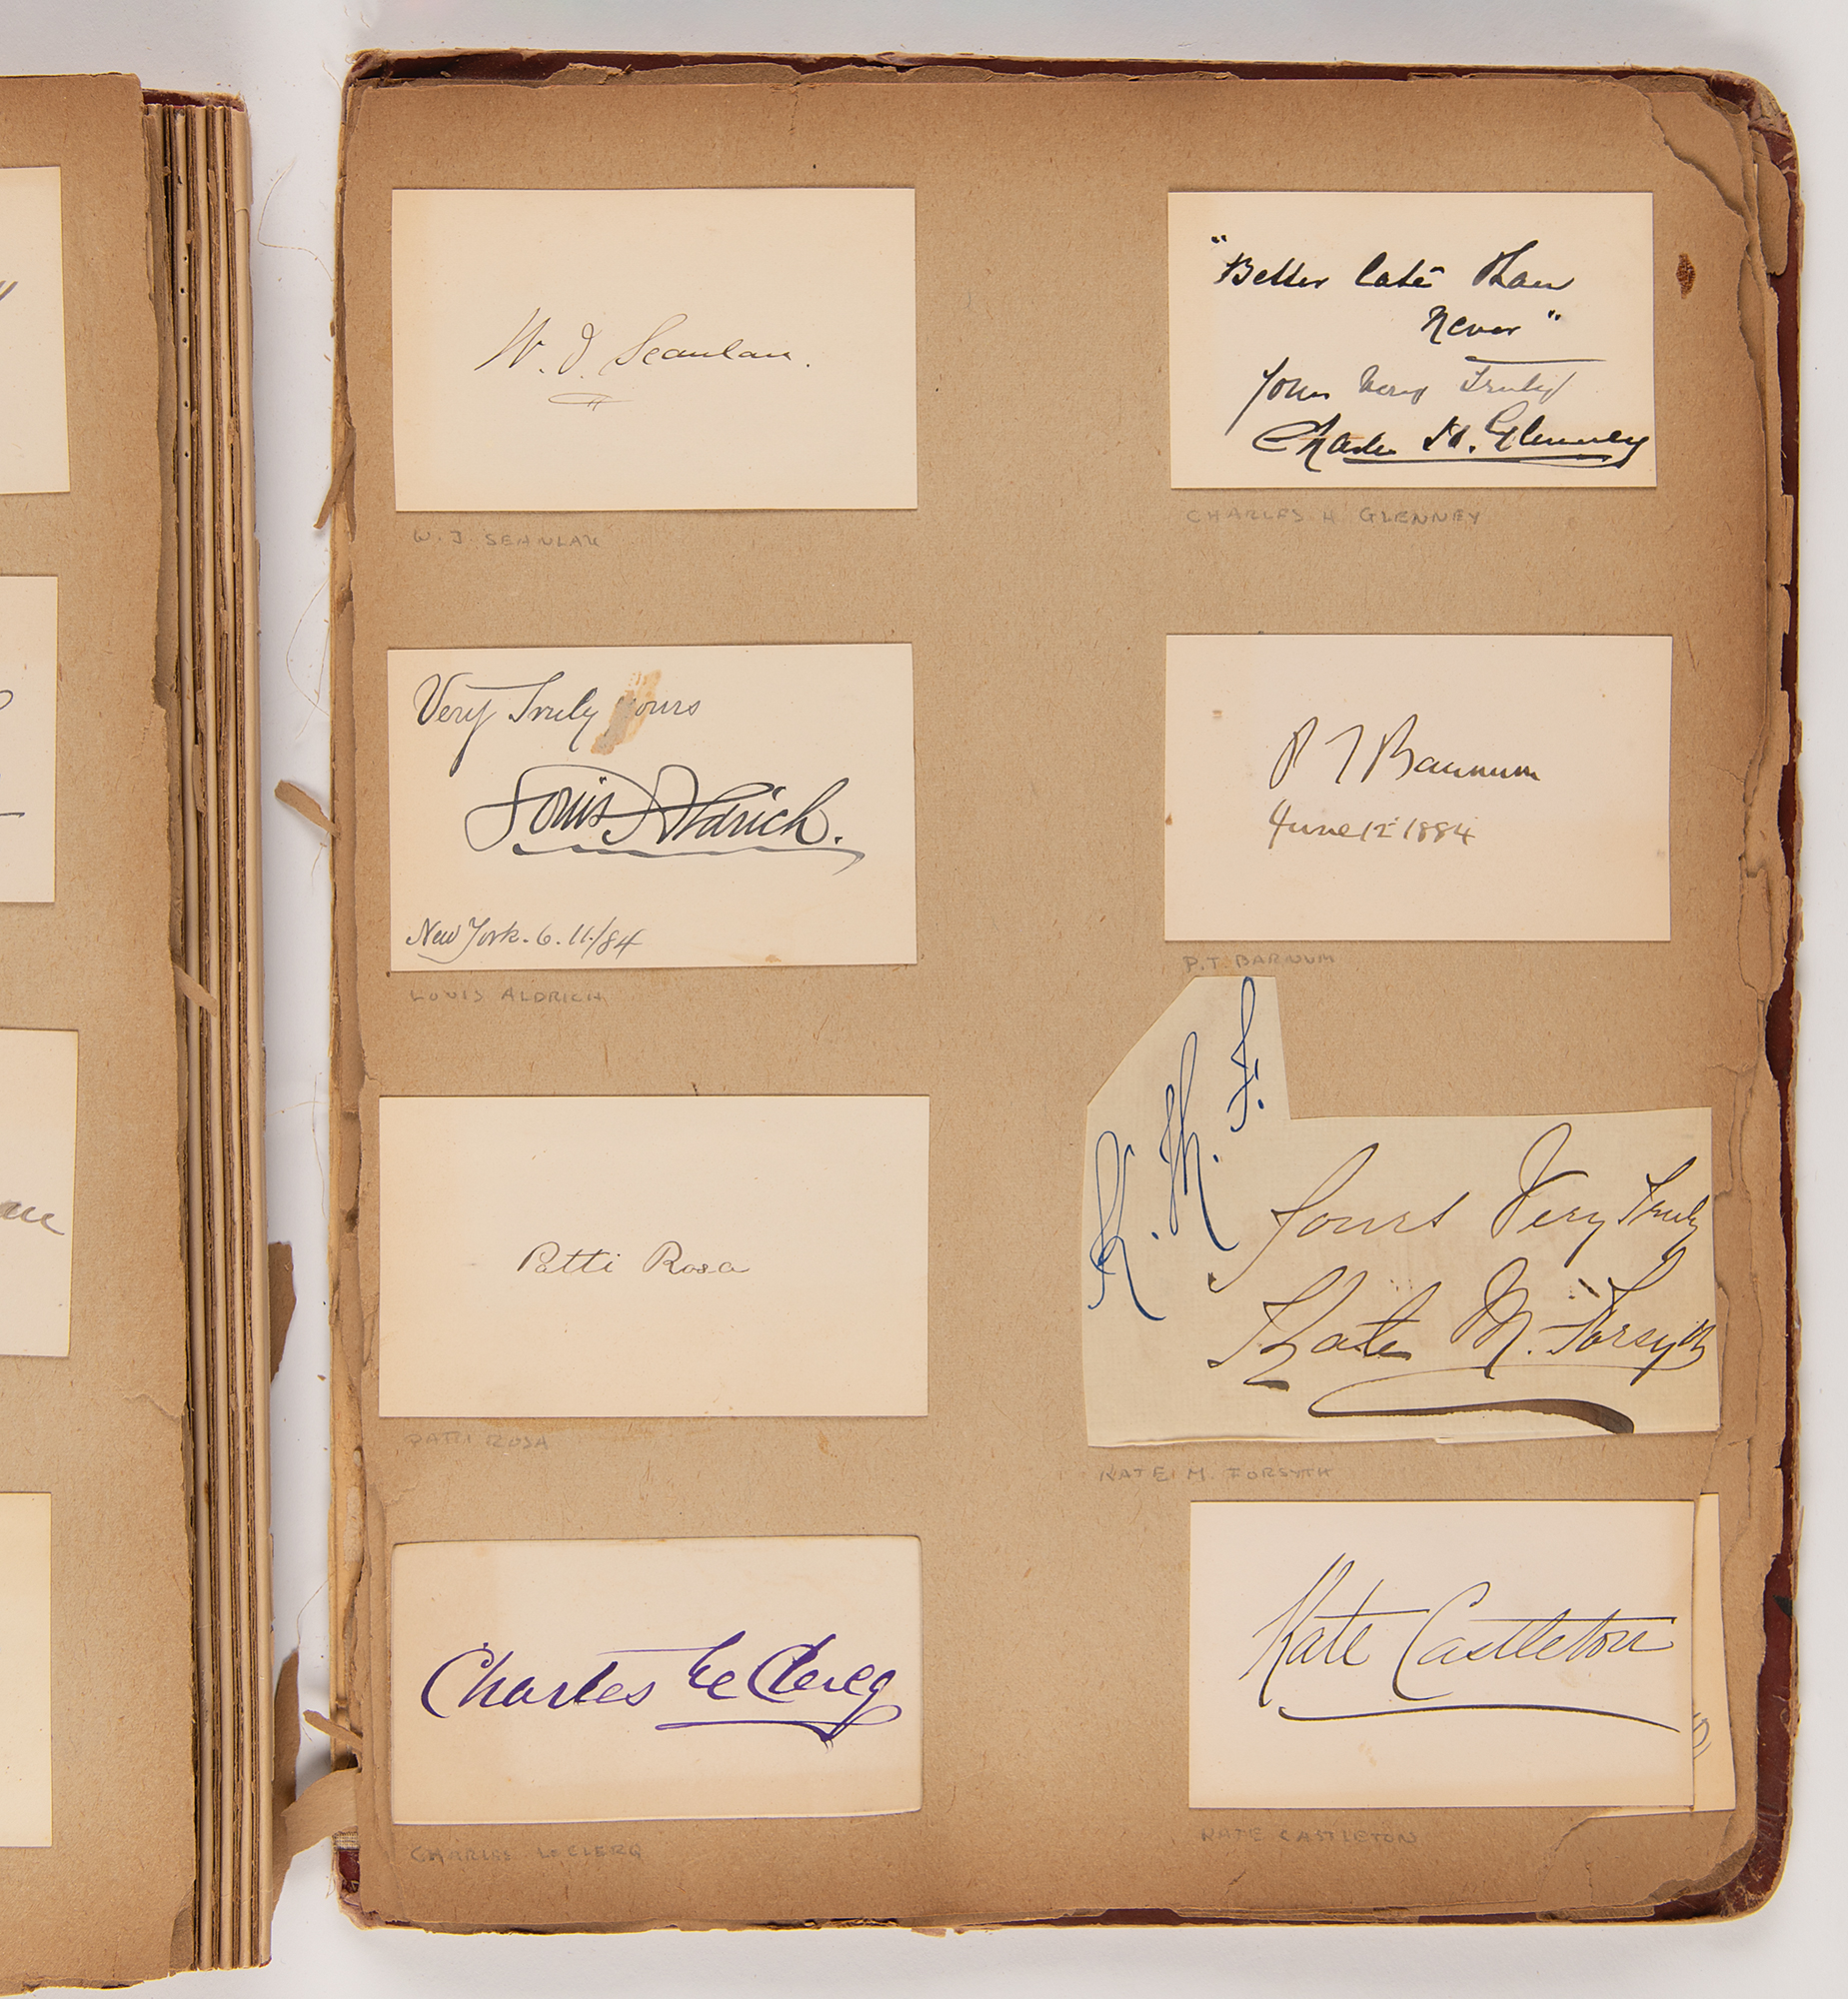 W. J. Scanlan.
W. J. SEANLAN
Very Truly yours
Louis Aldrich.
New York. 6. 11./84
LOUIS ALDRICH
Patti Rosa
PATTI ROSA
Charles Le Clercq
CHARLES LECLERQ
"Better late than
Never"
Yours Very Truly
Charles H. Glenney
CHARLES H GLENNEY
P T Barnum
June 12 1884
P.T. BARNUM
K. M. F.
Yours Very Truly
Kate M. Forsyth
KATE M. FORSYTH
Kate Castleton
KATE CASTLETON